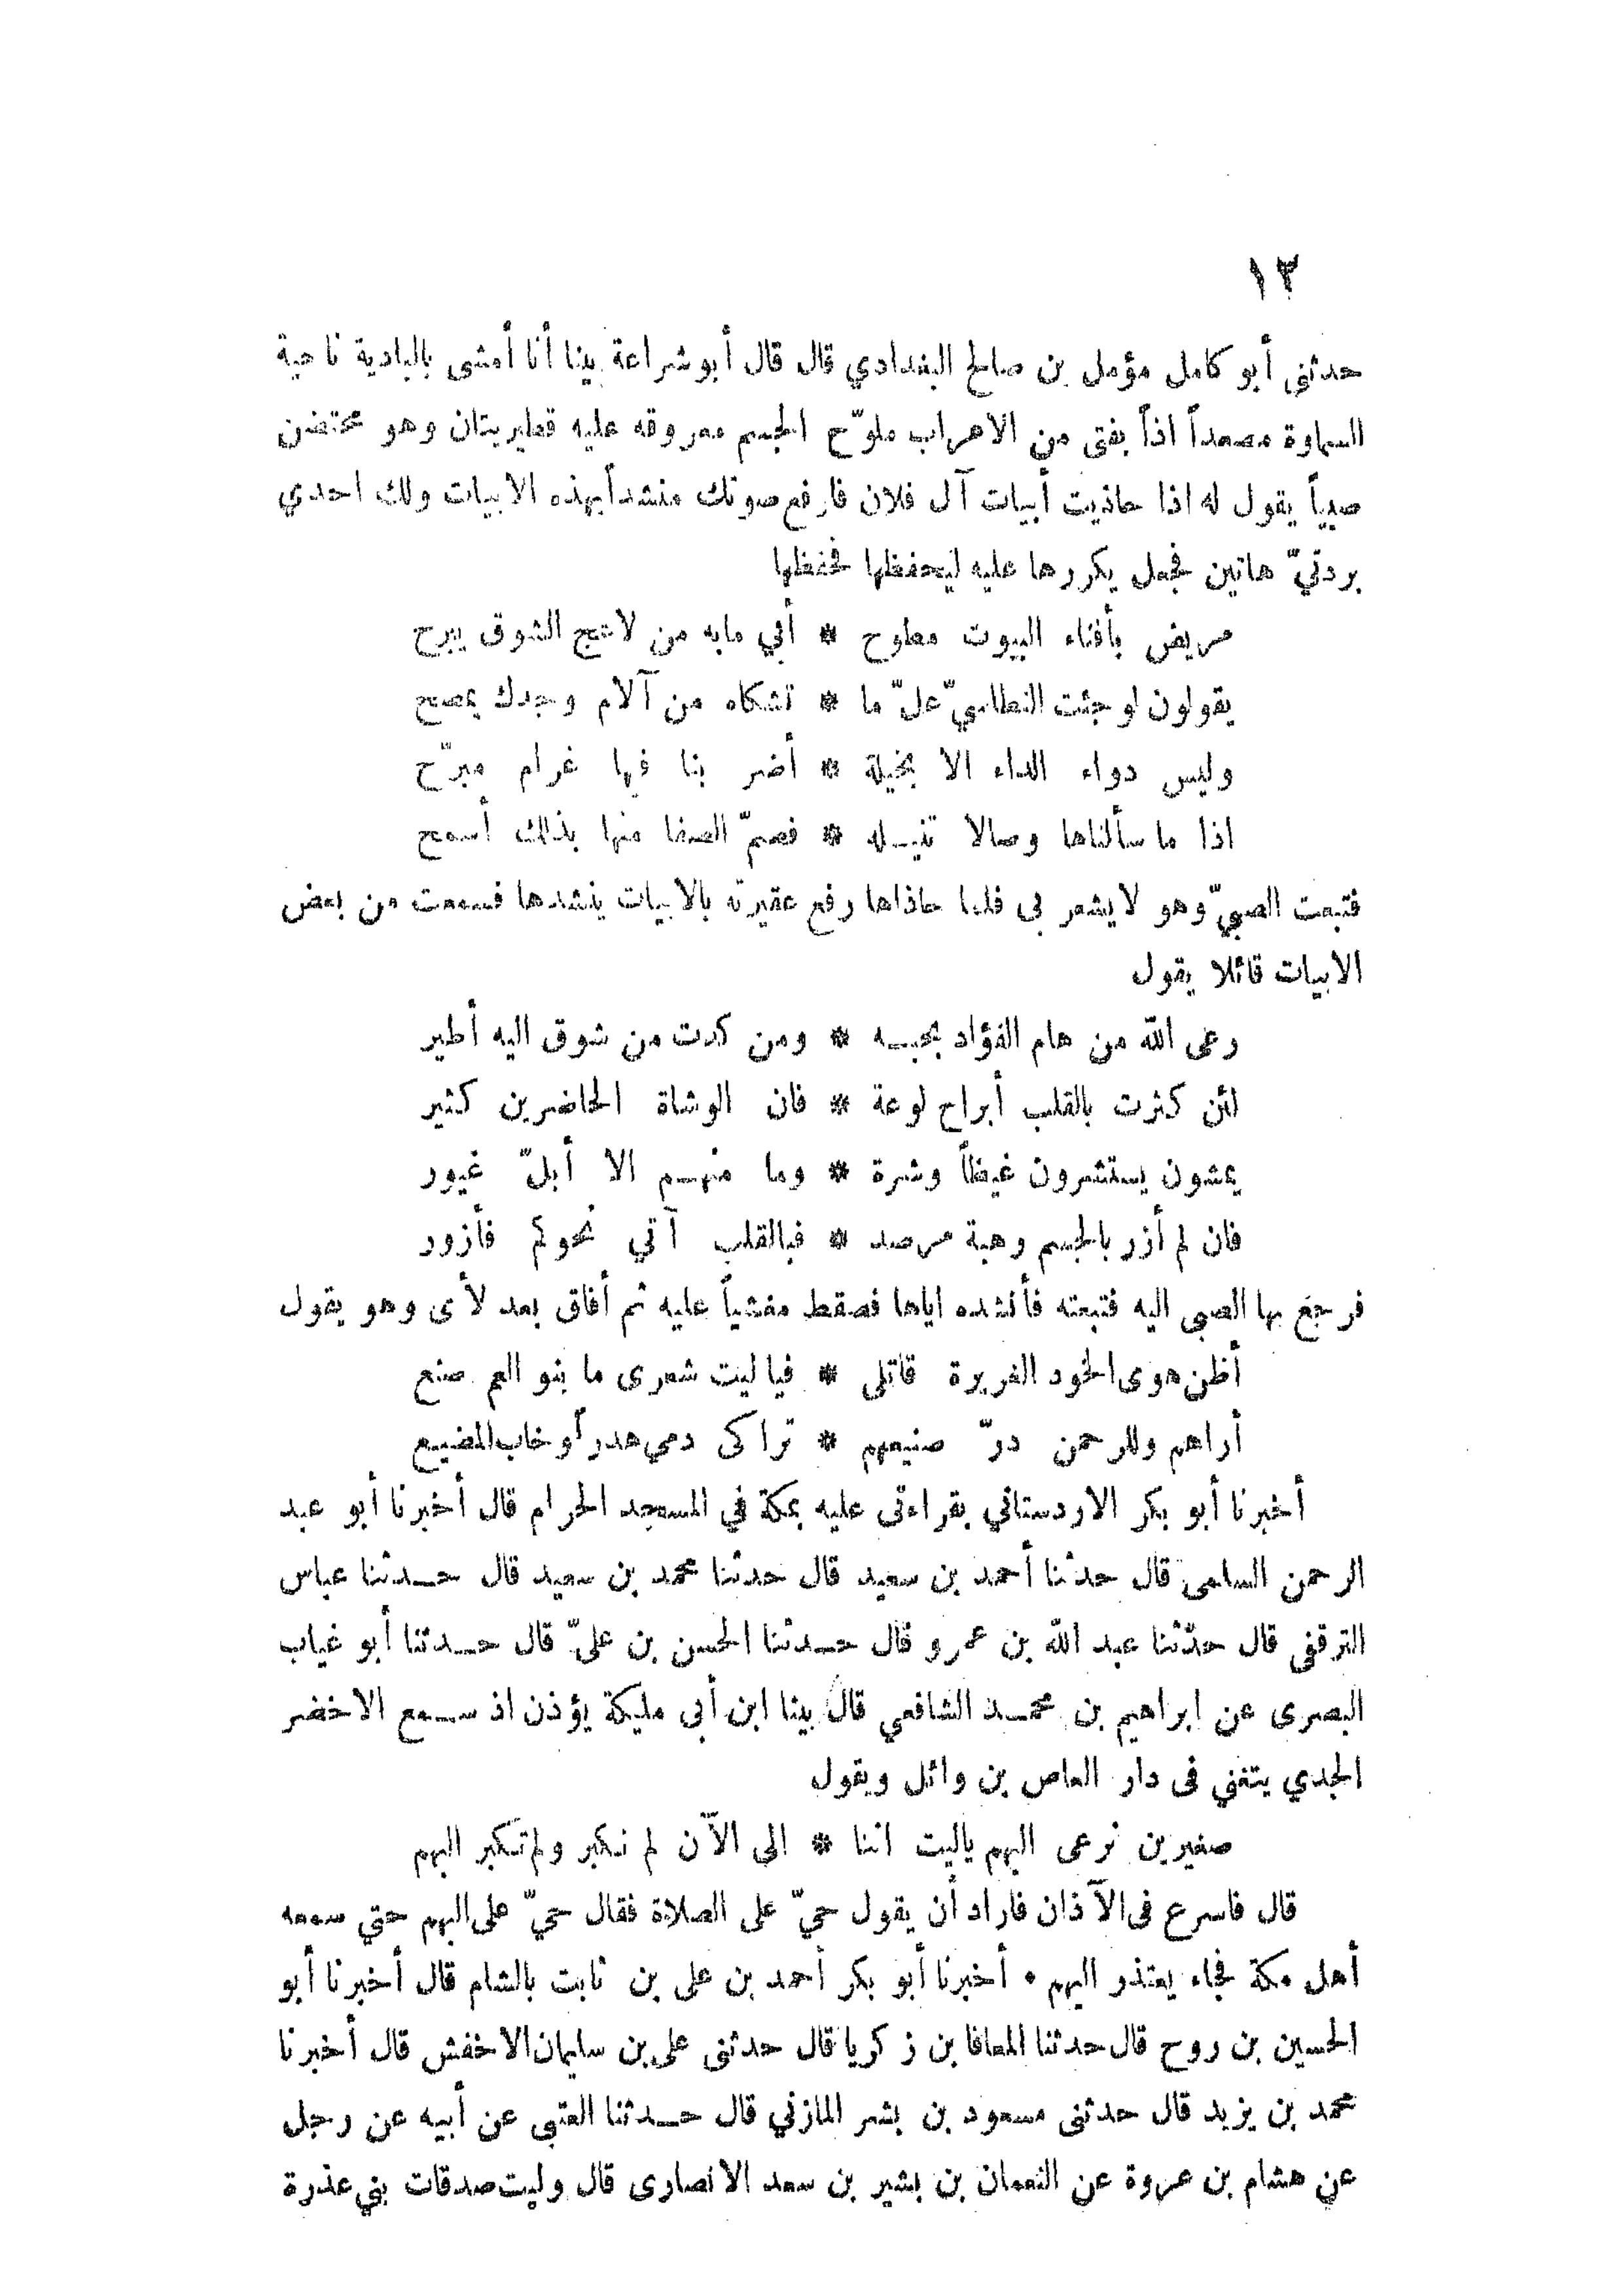 ١٣
حدثني أبو كامل مؤمل بن صالح البغدادي قال قال أبو شراعة بينا أنا أمشى بالبادية ناحية
السماوة مصعداً اذاً بفتى من الاعراب ملوّح الجسم معروقه عليه قطريتان وهو محتضن
صبياً يقول له اذا حاذيت أبيات آل فلان فارفع صوتك منشداً بهذه الابيات ولك احدي
بردتيّ هاتين فجعل يكررها عليه ليحفظها فحفظها
مريض بأفناء البيوت مطوح * أبي مابه من لاعج الشوق يبرح
يقولون لو جئت النطاسيّ علّ ما * تشكاه من آلام وجدك يمصح
وليس دواء الداء الا بخيلة * أضر بنا فيها غرام مبرّح
اذا ما سألناها وصالا تنيـله * فصمّ الصفا منها بذلك أسمح
فتبعت الصبيّ وهو لايشعر بى فلما حاذاها رفع عقيرته بالابيات ينشدها فسمعت من بعض
الابيات قائلا يقول
رعى الله من هام الفؤاد بحبـه * ومن كدت من شوق اليه أطير
لئن كثرت بالقلب أبراح لوعة * فان الوشاة الحاضرين كثير
يمشون يستشرون غيظاً وشرة * وما منهـم الا أبلّ غيور
فان لم أزر بالجسم رهبة مرصد * فبالقلب آتي نحوكم فأزور
فرجع بها الصبى اليه فتبعته فأنشده اياها فسقط مغشياً عليه ثم أفاق بعد لأى وهو يقول
أظن هوى الخود الغريرة قاتلى * فيا ليت شعرى ما بنو العم صنع
أراهم وللرحمن درّ صنيعهم * تراكى دمي هدراً وخاب المضيع
أخبرنا أبو بكر الاردستاني بقراءتى عليه بمكة في المسجد الحرام قال أخبرنا أبو عبد
الرحمن السلمى قال حدثنا أحمد بن سعيد قال حدثنا محمد بن سعيد قال حـدثنا عباس
الترقفى قال حدّثنا عبد الله بن عمرو قال حـدثنا الحسن بن عليّ قال حـدثنا أبو غياب
البصرى عن ابراهيم بن محمـد الشافعي قال بينا ابن أبى مليكة يؤذن اذ سـمع الاخضر
الجدي يتغني فى دار العاص بن وائل ويقول
صغيرين نرعى البهم ياليت اننا * الى الآن لم نكبر ولم تكبر البهم
قال فاسرع فى الآذان فاراد أن يقول حيّ على الصلاة فقال حيّ على البهم حتي سمعه
أهل مكة فجاء يعتذر اليهم • أخبرنا أبو بكر أحمد بن على بن ثابت بالشام قال أخبرنا أبو
الحسين بن روح قال حدثنا المعافا بن زكريا قال حدثنى على بن سليمان الاخفش قال أخبرنا
محمد بن يزيد قال حدثنى مسعود بن بشر المازني قال حـدثنا العتبى عن أبيه عن رجل
عن هشام بن عروة عن النعمان بن بشير بن سعد الانصارى قال وليت صدقات بني عذرة